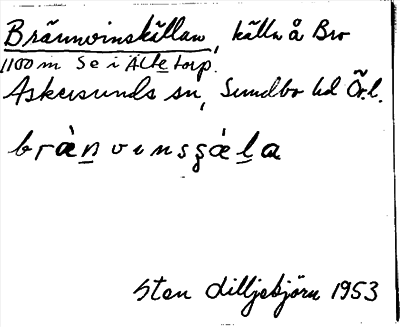 Brännvinskällan, källa å Bro
1100 m S e i Älte torp.
Askersunds sn, Sundbo hd Ör.l.
bràn̲vinsşæ̀l̲a
Sten Lilljebjörn 1953